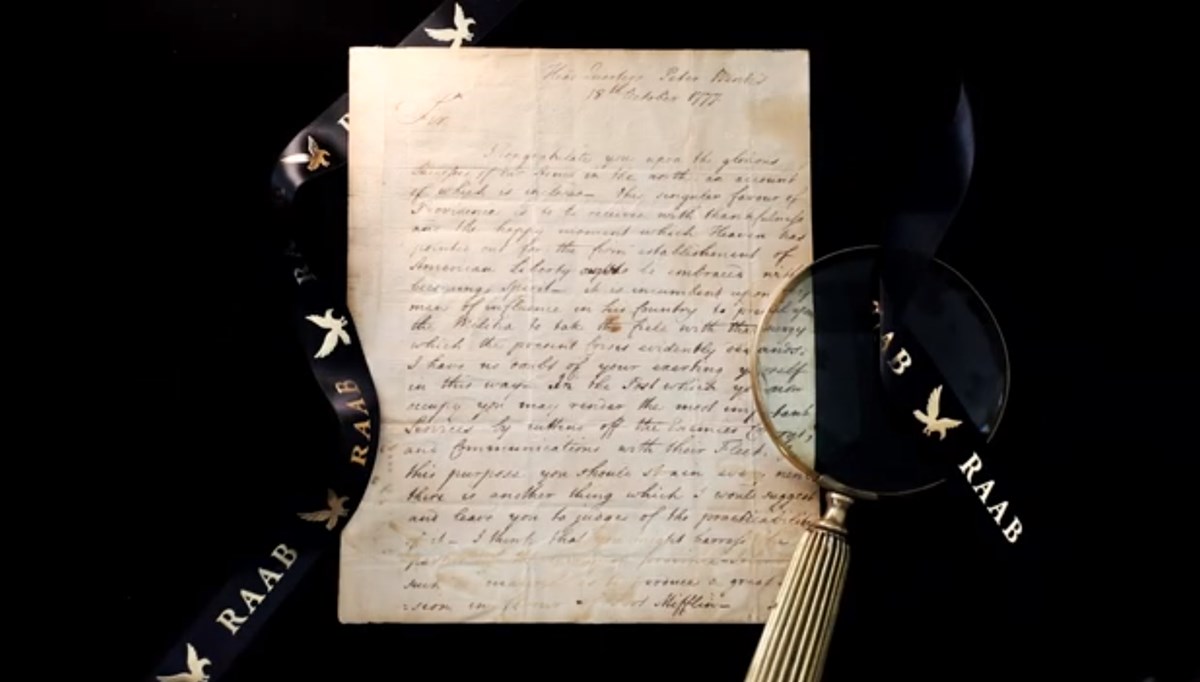 Head Quarters Peter Wentz's
18th October 1777
Sir
I congratulate you upon the glorious
Success of our Arms in the north an account
of which is inclosed This singular favour of
Providence is to be received with thankfulness
and the happy moment which Heaven has
pointed out for the firm establishment of
American Liberty ought to be embraced with
becoming Spirit it is incumbent upon
men of influence in his Country to
the Militia to take the field with that energy
which the present Crisis evidently
I have no doubt of your exerting
in this way. In the Post which you now
occupy you may render the most
Services by cutting off the Enemies
and Communications with their Fleet.
this purpose you should strain every nerve
there is another thing which I would suggest
and leave you to judge of the practicability
of it I think that might
such produce a great
in Fort Mifflin
RAAB
RAAB
RAAB
RAAB